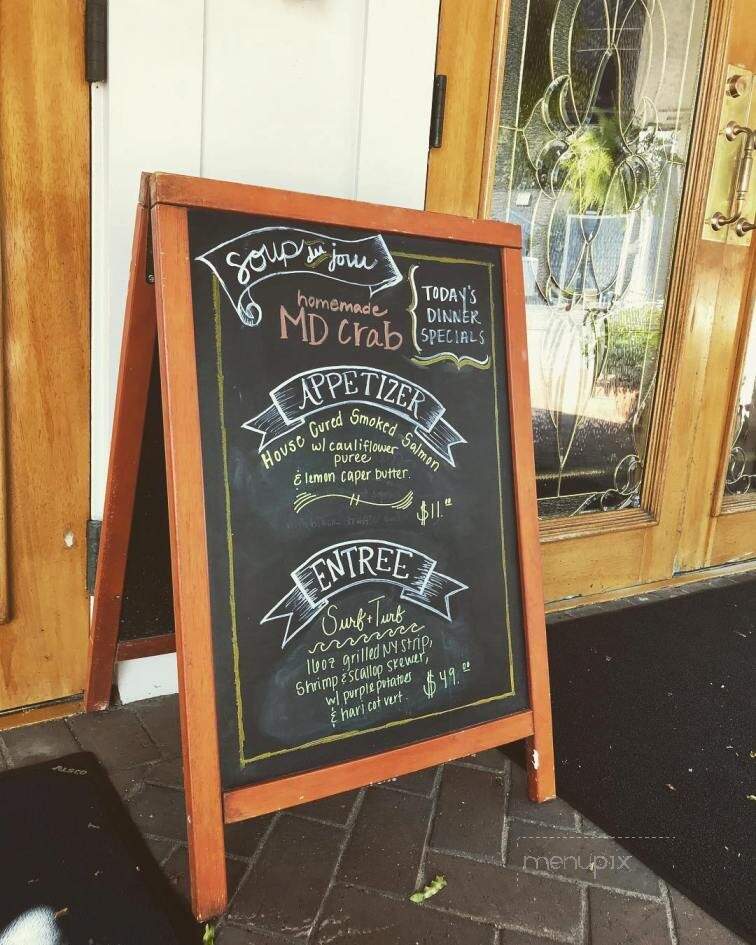 soup du jour
homemade
MD Crab
TODAY'S
DINNER
SPECIALS
APPETIZER
House Cured Smoked Salmon
w/ cauliflower
puree
& lemon caper butter.
$11.00
ENTREE
Surf + Turf
16oz grilled NY strip,
shrimp & scallop skewer,
w/ purple potatoes
& hari cot vert.
$49.00
menupix